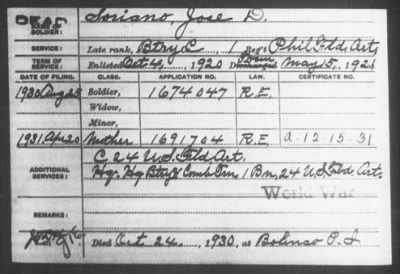 DEAD
NAME OF SOLDIER: Soriano, Jose D.
SERVICE: Late rank, Btry C, 1 Reg't Phil. Fld. Art.
TERM OF SERVICE: Enlisted Oct 4, 1920 Discharged May 15, 192
DATE OF FILING. CLASS. APPLICATION NO. LAW. CERTIFICATE NO.
1930 Aug 25 Soldier, 1674047 R.E.
Widow,
Minor,
1931 Apr 20 Mother 1691704 R.E. a-12-15-31
ADDITIONAL SERVICES: C 24 U.S. Fld Art.
Hq. Hq Btry & Comb Trn, 1 Bn, 24 U.S. Fld. Art.
World War
REMARKS:
Died Oct 24, 1930, at Bolinao P.I